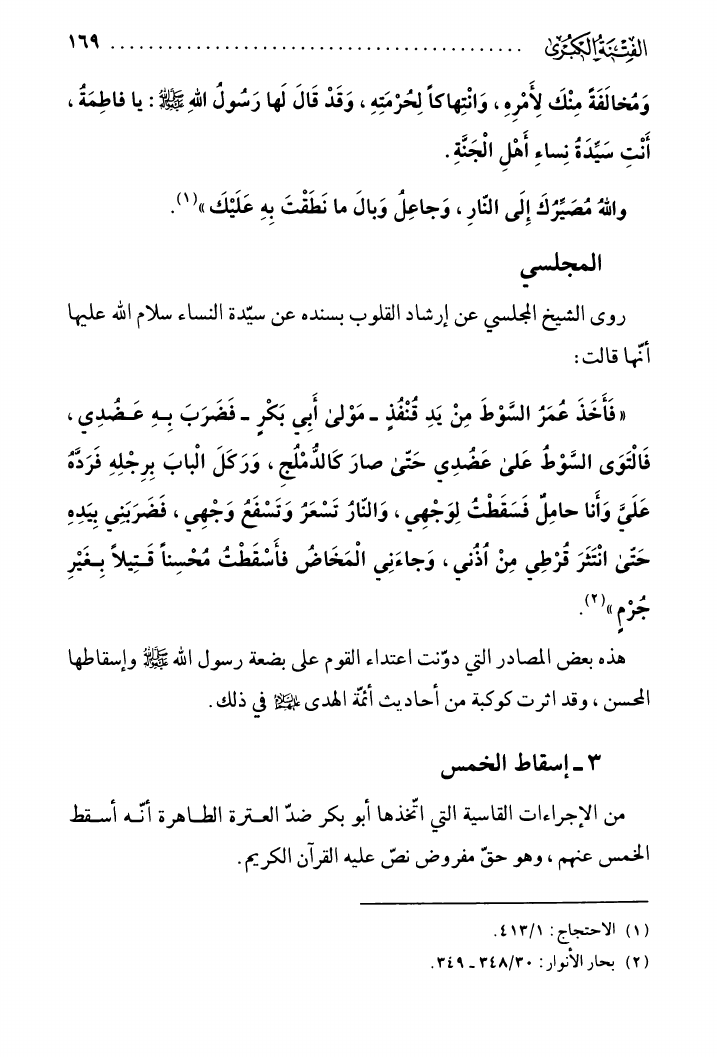 الفِتْنَةُ الكُبْرىٰ ............................................. ١٦٩
وَمُخالَفَةً مِنْكَ لِأَمْرِهِ ، وَانْتِهاكاً لِحُرْمَتِهِ ، وَقَدْ قَالَ لَها رَسُولُ اللهِ ﷺ : يا فاطِمَةُ ،
أَنْتِ سَيِّدَةُ نِساءِ أَهْلِ الْجَنَّةِ .
واللهُ مُصَيِّرُكَ إِلَى النّارِ ، وَجاعِلُ وَبالَ ما نَطَقْتَ بِهِ عَلَيْكَ »(١).
المجلسي
روى الشيخ المجلسي عن إرشاد القلوب بسنده عن سيّدة النساء سلام الله عليها
أنّها قالت :
« فَأَخَذَ عُمَرُ السَّوْطَ مِنْ يَدِ قُنْفُذٍ ـ مَوْلىٰ أَبِي بَكْرٍ ـ فَضَرَبَ بِـهِ عَـضُدِي ،
فَالْتَوَى السَّوْطُ عَلىٰ عَضُدِي حَتّىٰ صارَ كَالدُّمْلُجِ ، وَرَكَلَ الْبابَ بِرِجْلِهِ فَرَدَّهُ
عَلَيَّ وَأَنا حامِلٌ فَسَقَطْتُ لِوَجْهِي ، وَالنّارُ تَسْعَرُ وَتَسْفَعُ وَجْهِي ، فَضَرَبَنِي بِيَدِهِ
حَتّىٰ انْتَثَرَ قُرْطِي مِنْ أُذُني ، وَجاءَنِي الْمَخَاضُ فأَسْقَطْتُ مُحْسِناً قَـتِيلاً بِـغَيْرِ
جُرْمٍ »(٢).
هذه بعض المصادر التي دوّنت اعتداء القوم على بضعة رسول الله ﷺ وإسقاطها
المحسن ، وقد اثرت كوكبة من أحاديث أئمّة الهدى عليهم السلام في ذلك .
٣ ـ إسقاط الخمس
من الإجراءات القاسية التي اتّخذها أبو بكر ضدّ العـترة الطـاهرة أنّـه أسـقط
الخمس عنهم ، وهو حقّ مفروض نصّ عليه القرآن الكريم .
(١) الاحتجاج : ٤١٣/١.
(٢) بحار الأنوار : ٣٤٨/٣٠ ـ ٣٤٩.